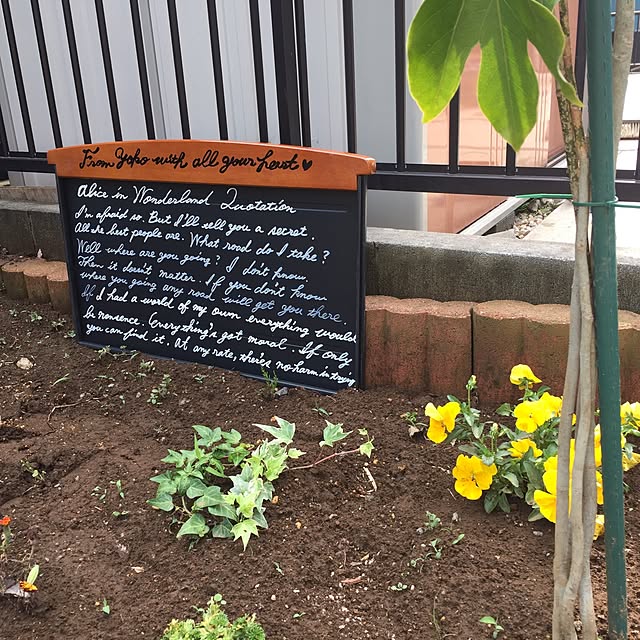 From Yoko with all your heart ♥
Alice in Wonderland Quotation
I'm afraid so. But I'll sell you a secret
All the best people are. What road do I take?
Well where are you going? I don't know
Then it doesn't matter. If you don't know
where you going any road will get you there.
If I had a world of my own everything would
be nonsence. Everything's got moral. If only
you can find it. At any rate, there's no harm in trying